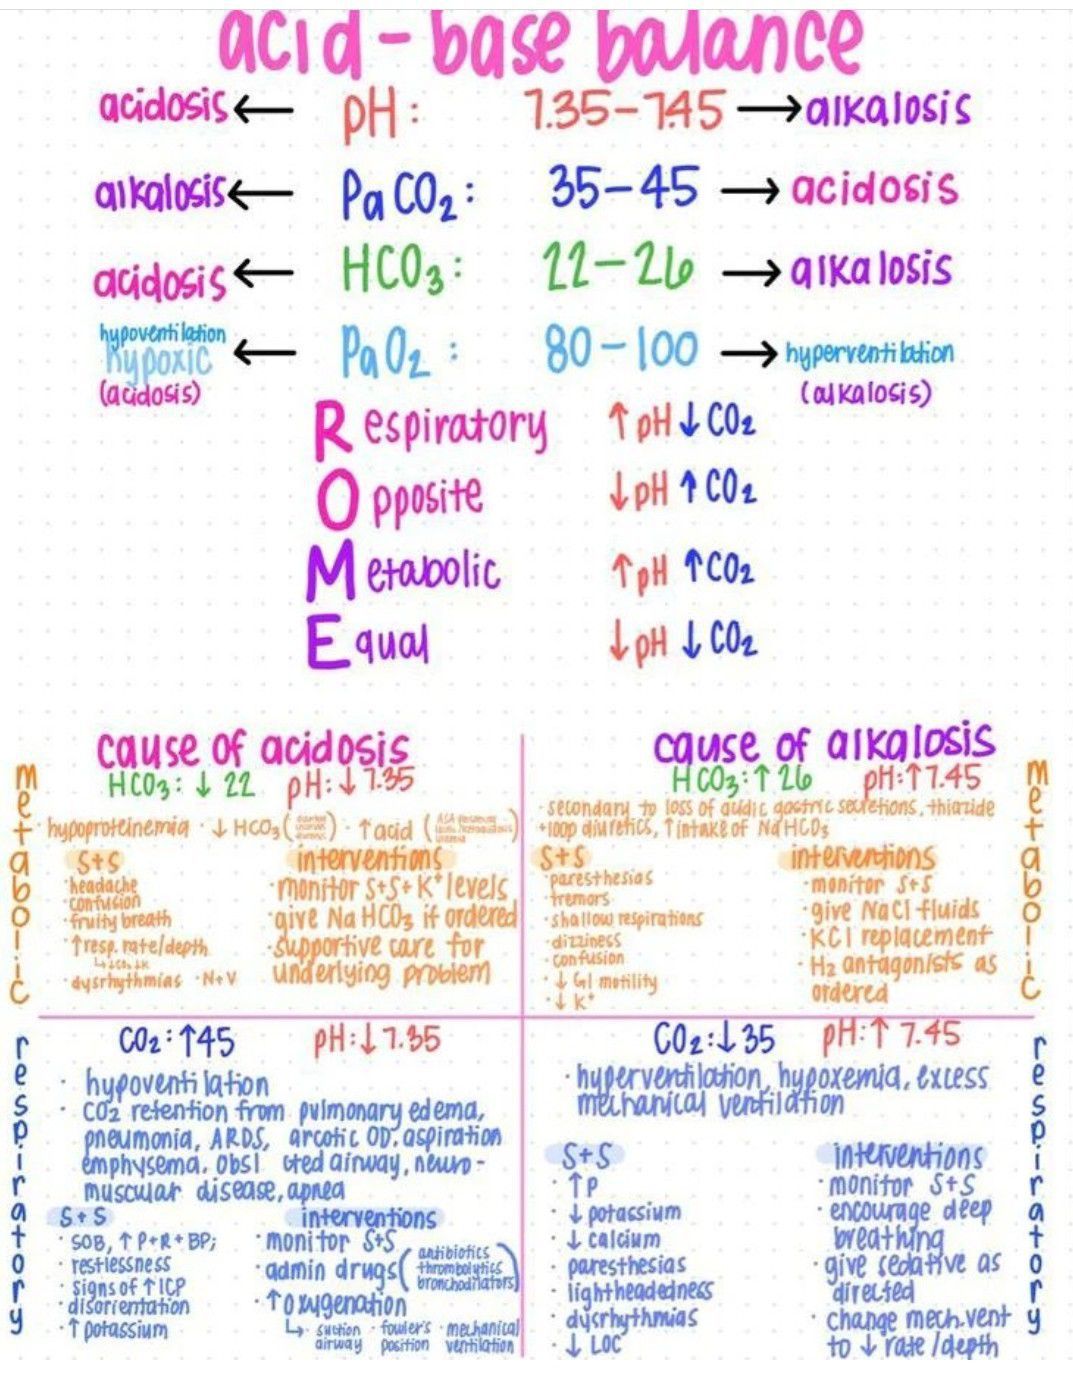 acid-base balance
acidosis ← pH: 7.35-7.45 → alkalosis
alkalosis ← PaCO₂: 35-45 → acidosis
acidosis ← HCO₃: 22-26 → alkalosis
hypoventilation
hypoxic ← PaO₂: 80-100 → hyperventilation
(acidosis) (alkalosis)
Respiratory ↑pH ↓CO₂
Opposite ↓pH ↑CO₂
Metabolic ↑pH ↑CO₂
Equal ↓pH ↓CO₂
cause of acidosis
metabolic
HCO₃: ↓ 22 pH: ↓ 7.35
· hypoproteinemia · ↓ HCO₃ ( ) · ↑ acid ( )
S+S
· headache
· confusion
· fruity breath
· ↑ resp. rate/depth
· dysrhythmias · N+V
interventions
· monitor S+S + K⁺ levels
· give NaHCO₃ if ordered
· supportive care for
underlying problem
cause of alkalosis
metabolic
HCO₃: ↑ 26 pH: ↑ 7.45
· secondary to loss of acidic gastric secretions, thiazide
+loop diuretics, ↑ intake of NaHCO₃
S+S
· paresthesias
· tremors
· shallow respirations
· dizziness
· confusion
· ↓ GI motility
· ↓ K⁺
interventions
· monitor S+S
· give NaCl fluids
· KCl replacement
· H₂ antagonists as
ordered
respiratory
CO₂: ↑45 pH: ↓ 7.35
· hypoventilation
· CO₂ retention from pulmonary edema,
pneumonia, ARDS, arcotic OD, aspiration
emphysema, obsl cted airway, neuro-
muscular disease, apnea
S+S
· SOB, ↑ P+R+BP;
· restlessness
· signs of ↑ ICP
· disorientation
· ↑ potassium
interventions
· monitor S+S
· admin drugs (antibiotics
thrombolytics
bronchodilators)
· ↑ oxygenation
↳ · suction · fowler's · mechanical
airway position ventilation
respiratory
CO₂: ↓ 35 pH: ↑ 7.45
· hyperventilation, hypoxemia, excess
mechanical ventilation
S+S
· ↑ P
· ↓ potassium
· ↓ calcium
· paresthesias
· lightheadedness
· dysrhythmias
· ↓ LOC
interventions
· monitor S+S
· encourage deep
breathing
· give sedative as
directed
· change mech.vent
to ↓ rate/depth